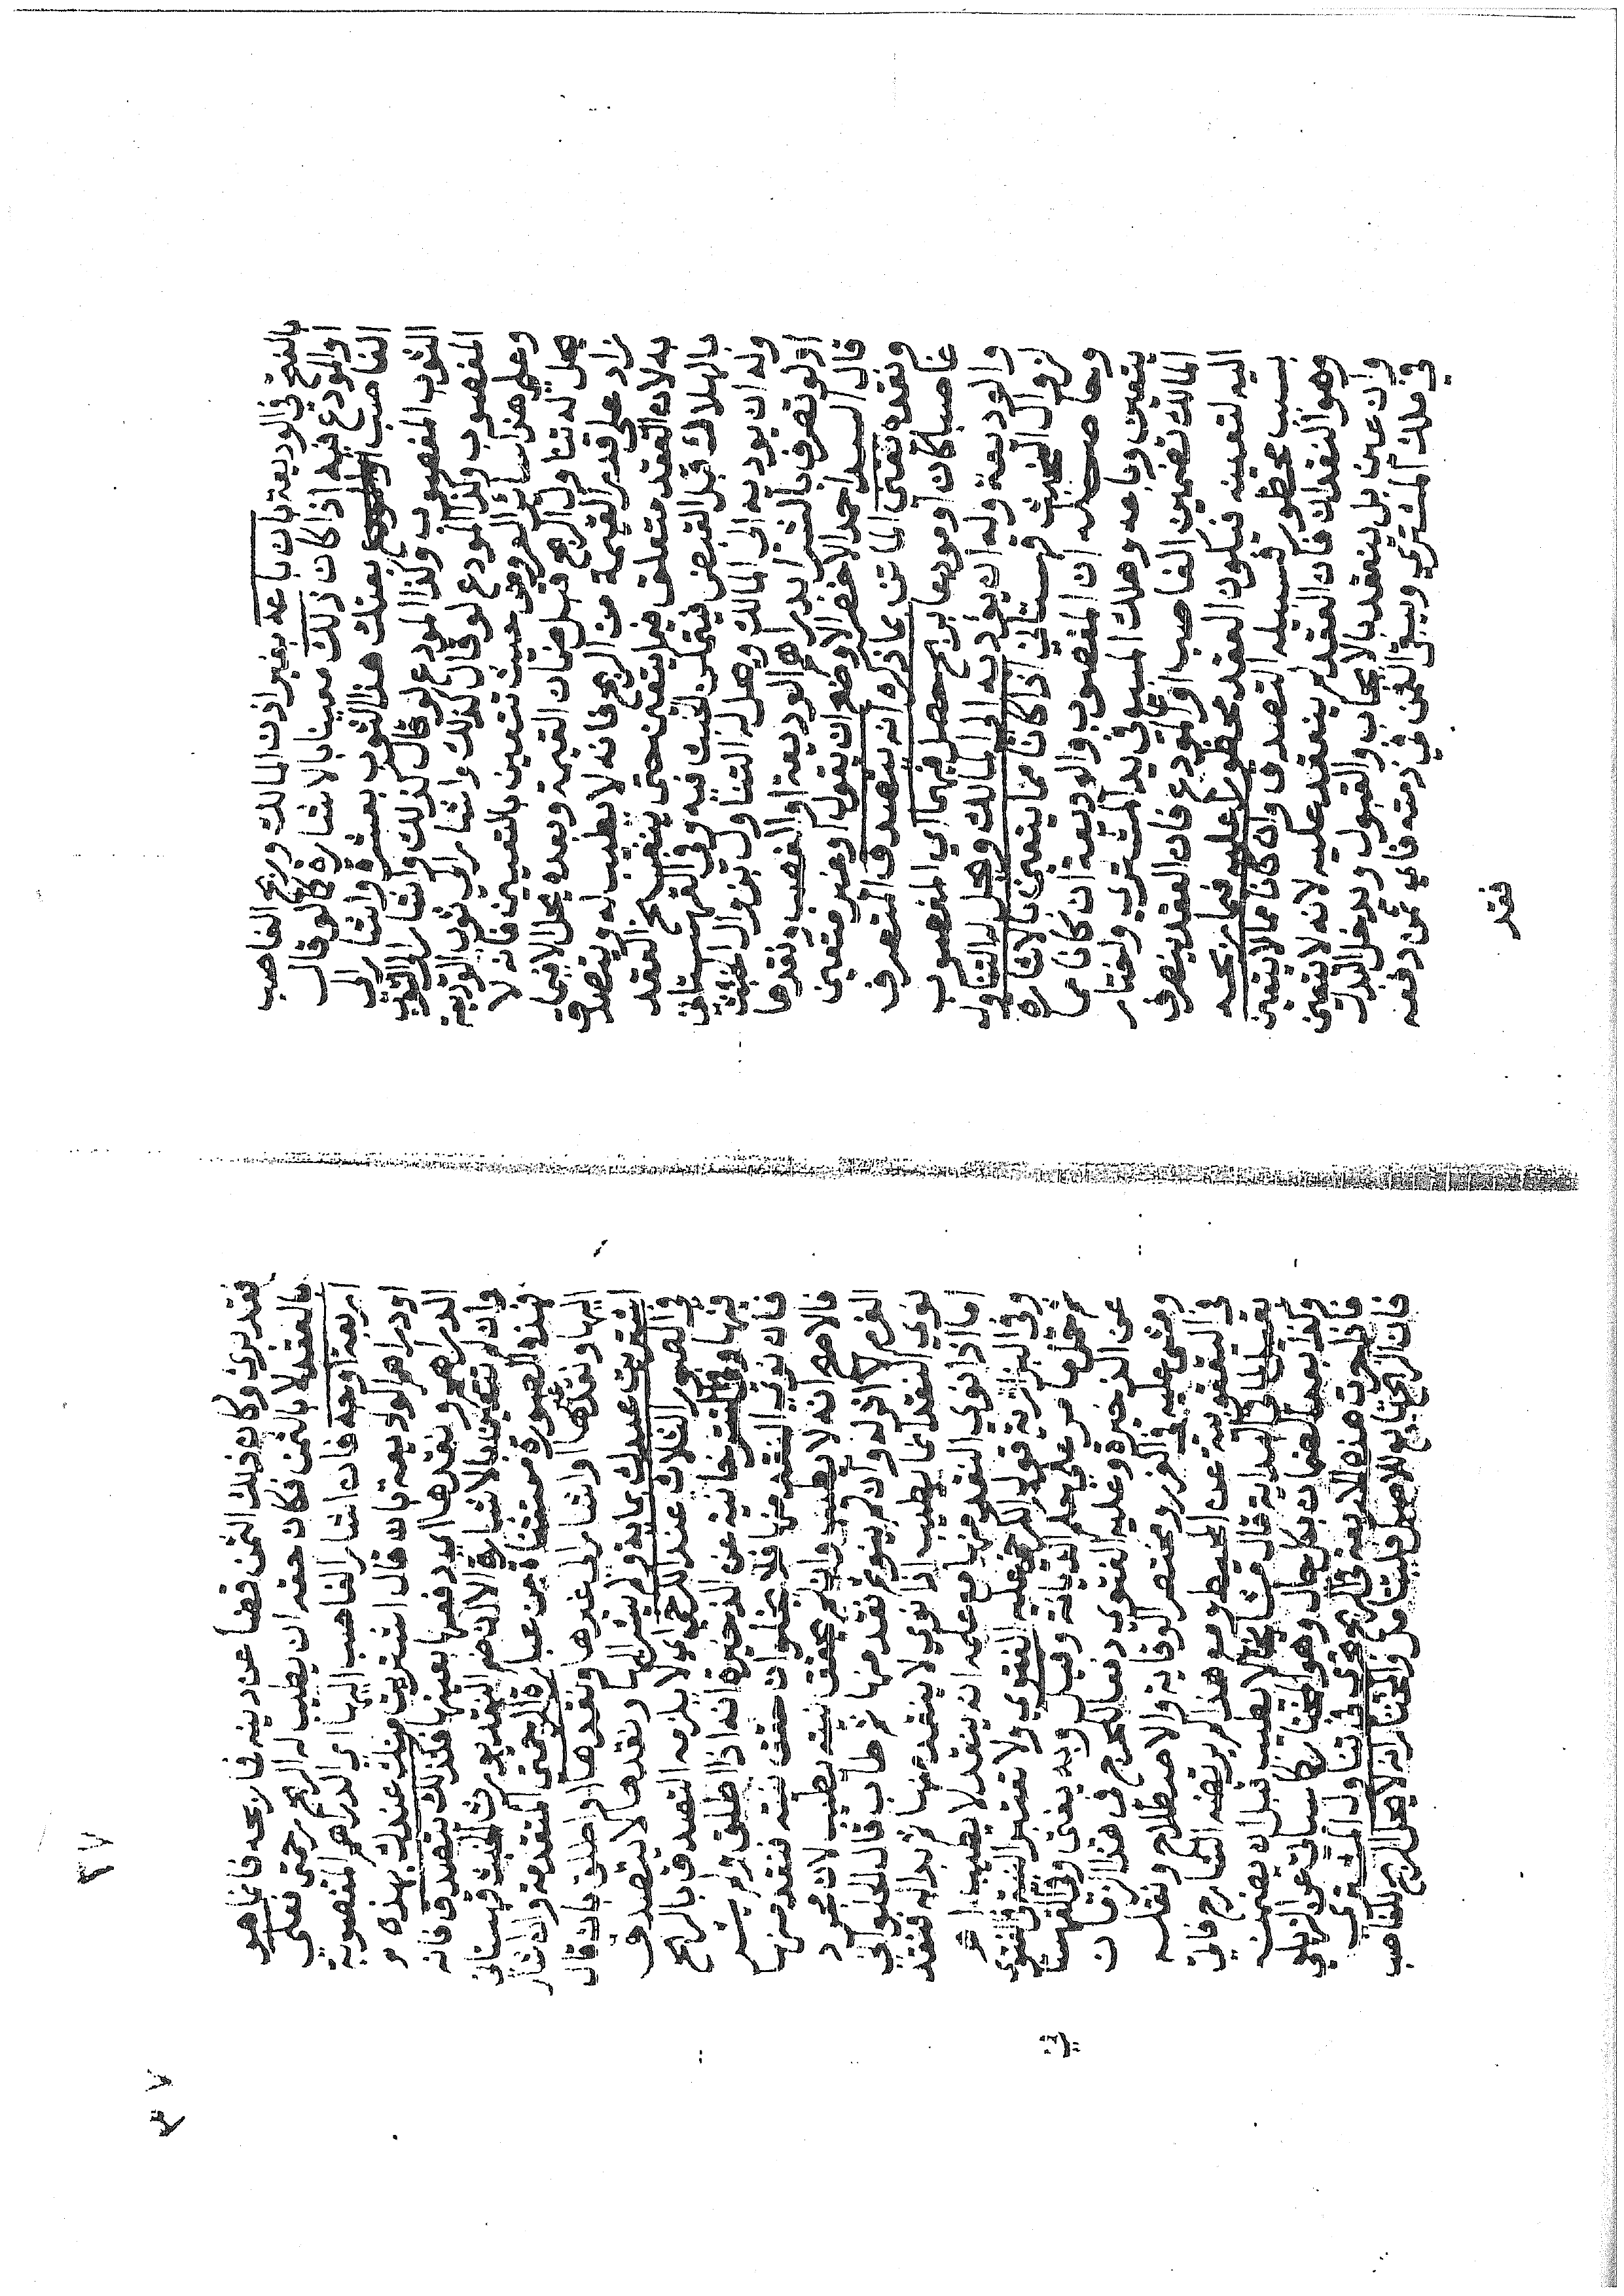 بالفتح في الوديعة بان باعه بغير اذن المالك وربح الغاصب
او المودع فيه اذا كان ذلك معينا بالاشارة كما لو قال
الغاصب او المودع بعتك هذا الثوب بعشرة واشار الى
الثوب المغصوب وكذا المودع لو قال كذلك واشار الى الثوب
المغصوب وكذا المودع لو قال كذلك واشار الى ثوب الوديعة
وعلى هذا سائر العروض حيث تتعين بالتعيين فانه لا
يحل له تناول الربح قبل ضمان القيمة وبعده يحل الا فيما
زاد على قدر القيمة من الربح فانه لا يطيب له ويتصدق
به لان العقد متعلق فيما يتعين حتى ينفسخ العقد
بالهلاك قبل القبض فيتمكن الخبث فيه وفي القهستاني
وله ان يوديه الى المالك ويحل له التناول بزوال الخبث
او لو تصرف بالشراء بدراهم الوديعة او الغصب ونقدها
قال السيد احمد الاخضر الاوضح ان يقول او غير متعين
ونقده يعني الماتن بما ذكره انه يتصدق المتصرف
غاصبا كان او مودعا بربح حصل فيهما اي المغصوب
والوديعة وله ان يؤديه الى المالك ويحل له التناول
لزوال الخبث قهستاني اذا كانا مما يتعين بالاشارة
وبما حصله ان المغصوب والوديعة ان كانا مما
يتعين وباعه وهلك المبيع في يد المشتري واختار
المالك تضمين الغاصب او المودع فان العقد ينصرف
اليه لتعيينه فيكون العقد محظورا عليه فما ربحه
بسبب محظور فسبيله التصدق وان كانا مما لا يتعين
وهو النقدان فان العقد لم ينعقد عليه لانه لا يتعين
وان عين بل ينعقد بالايجاب والقبول ويدخل البدل
في ملك المشتري ويبقى الثمن في ذمته فاي ثمن دفعه
فقد
فقد برئ وكان ذلك الثمن قضاء عن دينه فما ربحه فانما هو
بالعقد لا بالثمن فكان حقه ان يطيب له الربح رحمتي فعلى
اربعة اوجه فان اشار الغاصب اليها اي الدراهم المغصوبة
او دراهم الوديعة بان قال اشتريت منك عبدك بهذه
الدراهم ونقدها اي دفعها بعينها فكذلك يتصدق فانه
وان لم تتعين بالاشارة الا ان ضم النقد يورث الخبث قهستاني
فهذه الصورة مستثناة من عبارة الرحمتي المتقدمة وان اشار
اليها ونقد غيرها او اشار الى غيرها ونقدها او اطلق بان قال
اشتريت عبدك بمائة ولم يشر اليها ونقدها لا يتصدق
في الصور الثلاث عند الكرخي اي ولا يلزمه التصدق بالربح
فيها وفي التترخانية عن الذخيرة انه اذا اطلق ولم يشر
فان نوى النقد منها فلا يخلو ان حقق نيته فنقد منها
فالاصح انه لا يطيب وان لم يحقق نيته يطيب لان مجرد
العزم لا اثر له وان لم ينو ثم نقد منها طاب قال الحلواني
اما اذا نوى النقد منها مع علمه انه ينقد لا يطيب اهـ
نوى النقد انما يطيب اذا نوى لا ينقد منها ثم بدا له فنقد
وفي البزازية قول الكرخي عليه الفتوى ولا تعتبر النية في الفتوى
ثم حكمها مر على حكم الديانة وقيل وبه يفتى وفي القهستاني
عن الذخيرة وعليه الفتوى دفعا للحرج في هذا الزمان
ومشى عليه في الغرر ومختصر الوقاية والاصلاح ونقله
في اليعقوبية عن المحيط ومع هذا لم يرتضه الشارح فاتى
بقيل لما في الهداية قال مشايخنا لا يطيب قبل ان يضمن
وكذا بعد الضمان بكل حال وهو المختار كما سياتي عن الزيلعي
فاذا جرت هذه الاربعة في الربح تجري في تناول المشتري
فان الربح تابع للاصل فليتامل والمختار انه لا يحل الربح للغاصب
٣٧
٣٧